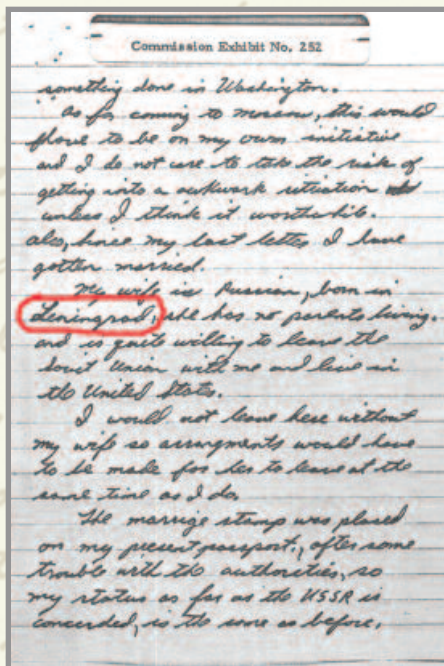 Commission Exhibit No. 252
something done in Washington.
As for coming to moscow, this would
have to be on my own initiative
and I do not care to take the risk of
getting into a awkwark situation
unless I think it worthwhile.
also, since my last letter I have
gotten married.
My wife is Russian, born in
Leningrad, she has no parents living.
and is quite willing to leave the
Soviet Union with me and live in
the United States.
I would not leave here without
my wife so arrangments would have
to be made for her to leave at the
same time as I do.
The marrige stamp was placed
on my present passport, after some
trouble with the authorities, so
my status as far as the USSR is
concerded, is the same as before,